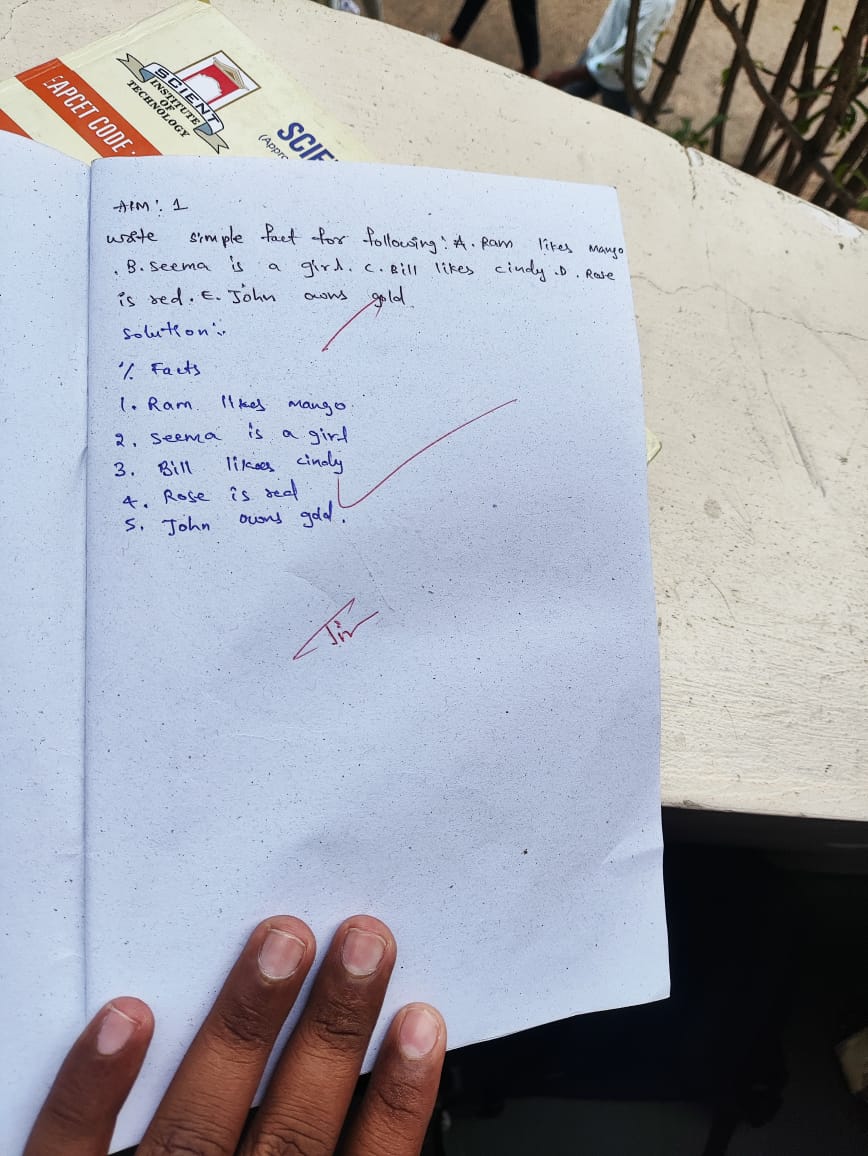 EAPCET CODE :
SCIENT
INSTITUTE
OF
TECHNOLOGY
SCIE
(Appro
AIM : 1
write simple fact for following : A. Ram likes mango
. B. Seema is a girl. C. Bill likes cindy .D. Rose
is red. E. John owns gold
Solution :-
% Facts
1. Ram likes mango
2. Seema is a girl
3. Bill likes cindy
4. Rose is red
5. John owns gold.